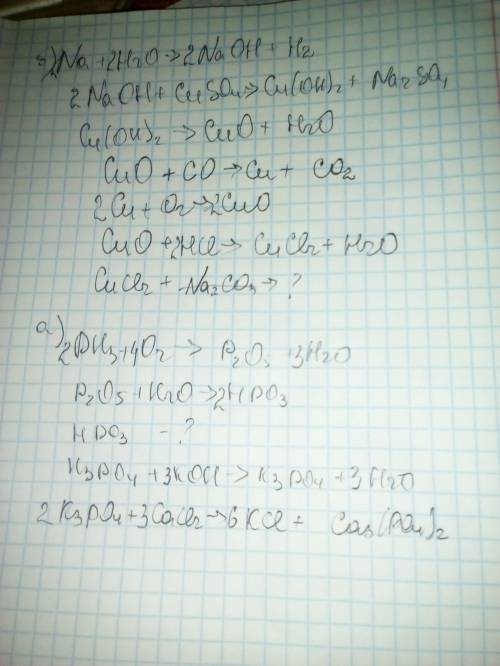 б) 2Na + 2H2O → 2NaOH + H2
2NaOH + CuSO4 → Cu(OH)2 + Na2SO4
Cu(OH)2 → CuO + H2O
CuO + CO → Cu + CO2
2Cu + O2 → 2CuO
CuO + 2HCl → CuCl2 + H2O
CuCl2 + Na2CO3 → ?
а) 2PH3 + 4O2 → P2O5 + 3H2O
P2O5 + H2O → 2HPO3
HPO3 - ?
H3PO4 + 3KOH → K3PO4 + 3H2O
2K3PO4 + 3CaCl2 → 6KCl + Ca3(PO4)2